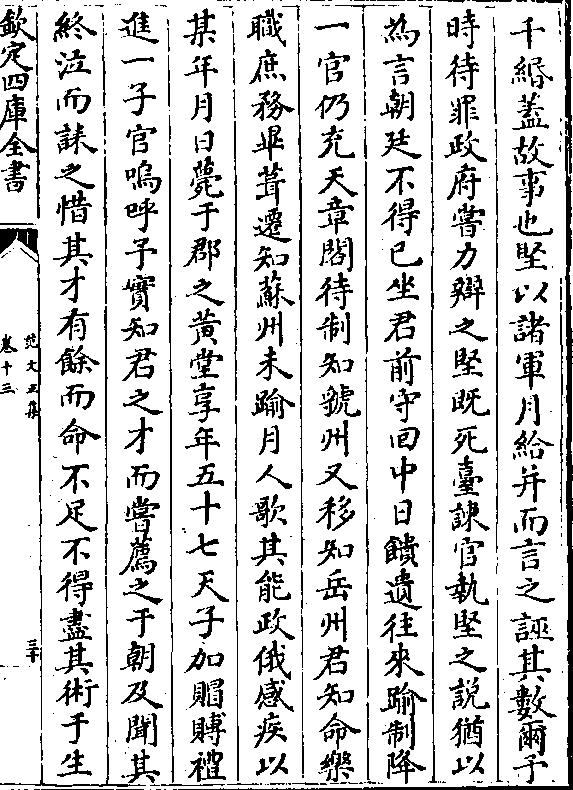 千緡蓋故事也堅以諸軍月給并而言之誣其數爾予
時待罪政府嘗力辯之堅既死臺諫官執堅之說猶以
為言朝廷不得已坐君前守回中日饋遺往來踰制降
一官仍充天章閣待制知虢州又移知岳州君知命樂
職庶務畢葺遷知蘇州未踰月人歌其能政俄感疾以
某年月日薨于郡之黃堂享年五十七天子加賵賻禮
進一子官嗚呼予實知君之才而嘗薦之于朝及聞其
終泣而誄之惜其才有餘而命不足不得盡其術于生
欽定四庫全書
范文正集
卷十三
三十